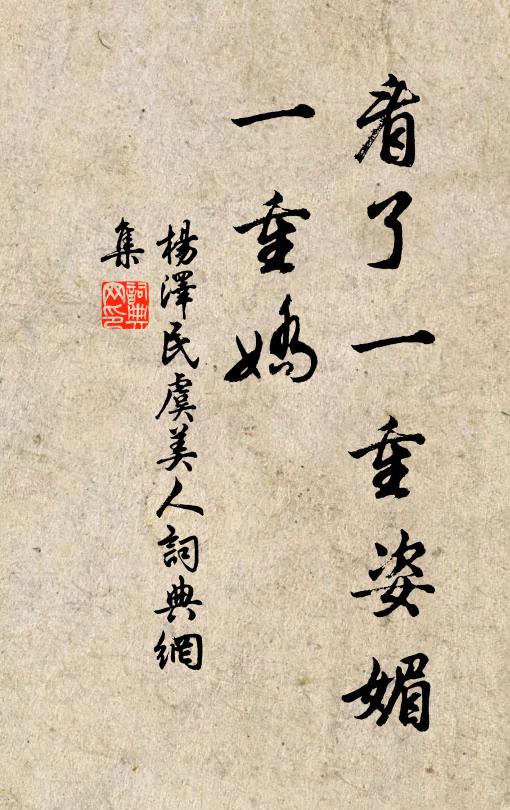 看了一重姿媚
一重嬌
楊澤民虞美人詞典網
集
詞典
网印